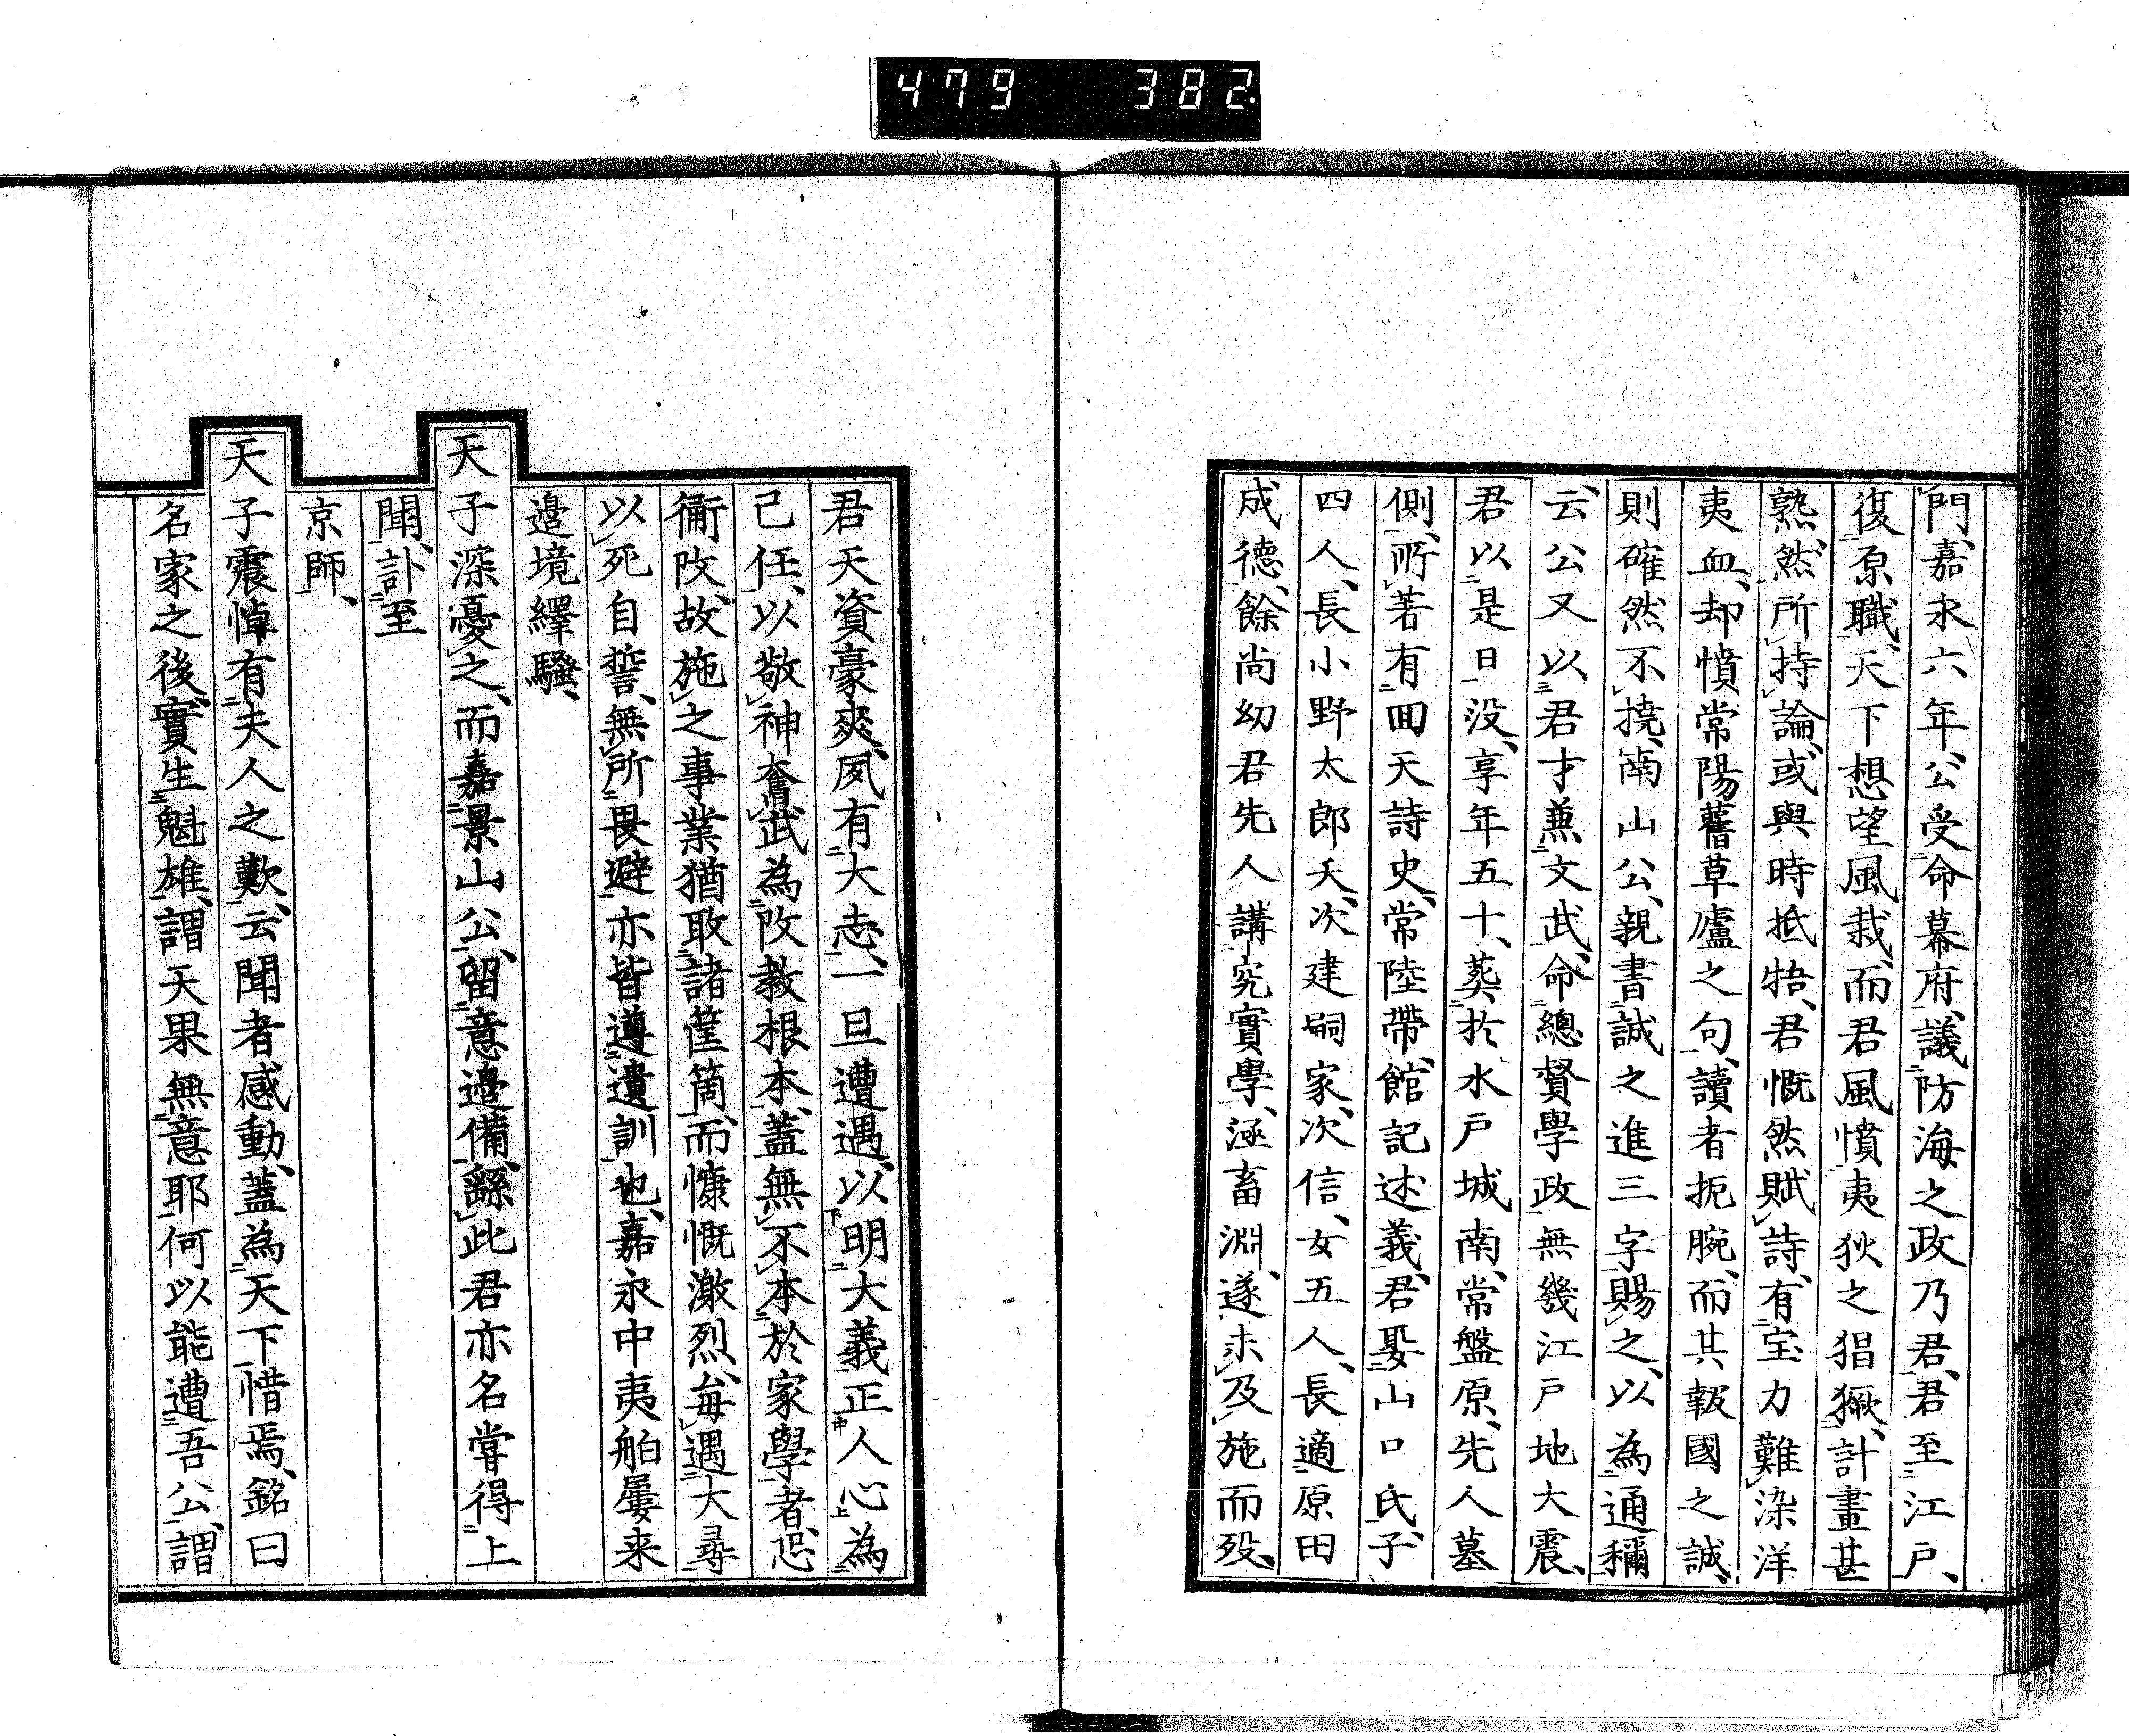 479 382.
門、嘉永六年、公受命幕府、議防海之政、乃君、君至江戸、
復原職、天下想望風裁、而君風憤夷狄之猖獗、計畫甚
熟、然所持論、或與時抵牾、君慨然賦詩、有宝力難染洋
夷血、却憤常陽舊草廬之句、讀者扼腕、而其報國之誠、
則確然不撓、南山公、親書誠之進三字賜之、以為通稱
云、公又以君才兼文武、命總賛學政、無幾江戸地大震、
君以是日没、享年五十、葬於水戸城南、常盤原、先人墓
側、所著有回天詩史、常陸帶、館記述義、君娶山口氏、子
四人、長小野太郎夭、次建嗣家、次信、女五人、長適原田
成德、餘尚幼君先人講究實學、涵畜淵、遂未及施而歿、
君天資豪爽、夙有大志、一旦遭遇、以明大義正人心為
己任、以敬神奮武為政教根本、蓋無不本於家學者、恐
衞攻、故施之事業猶敢諸筐篋、而慷慨激烈、毎遇大㝷
以死自誓、無所畏避、亦皆遵遺訓也、嘉永中夷舶屢来
邉境繹騒、
天子深憂之、而嘉景山公、留意邉備、繇此君亦名甞得上
聞、訃至
京師、
天子震悼、有夫人之歎、云聞者感動、蓋為天下惜焉、銘曰
名家之後、實生魁雄、謂天果無意耶何以能遭吾公、謂